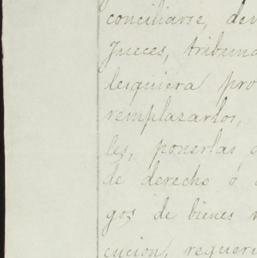 conciliarse, de
Jueces, tribun
lesquiera pro
remplasarlos,
les, ponerlas
de derecho ó
gos de bienes
cucion, requeri